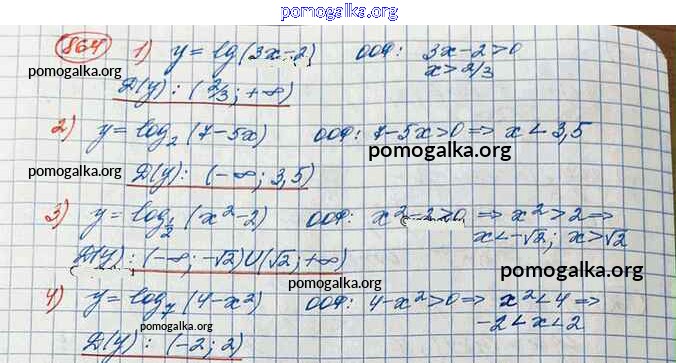 pomogalka.org
864 1) y = lg(3x-2) ООФ: 3x-2>0
x > 2/3
pomogalka.org
Д(y): (2/3; +∞)
2) y = log₂(7-5x) ООФ: 7-5x>0 => x < 3,5
pomogalka.org
pomogalka.org
Д(y): (-∞; 3,5)
3) y = log_{1/2}(x²-2) ООФ: x²-2>0 => x²>2 =>
x<-√2; x>√2
pomogalka.org
Д(y): (-∞; -√2)U(√2; +∞)
pomogalka.org
pomogalka.org
4) y = log₇(4-x²) ООФ: 4-x²>0 => x²<4 =>
-2<x<2
pomogalka.org
Д(y): (-2; 2)